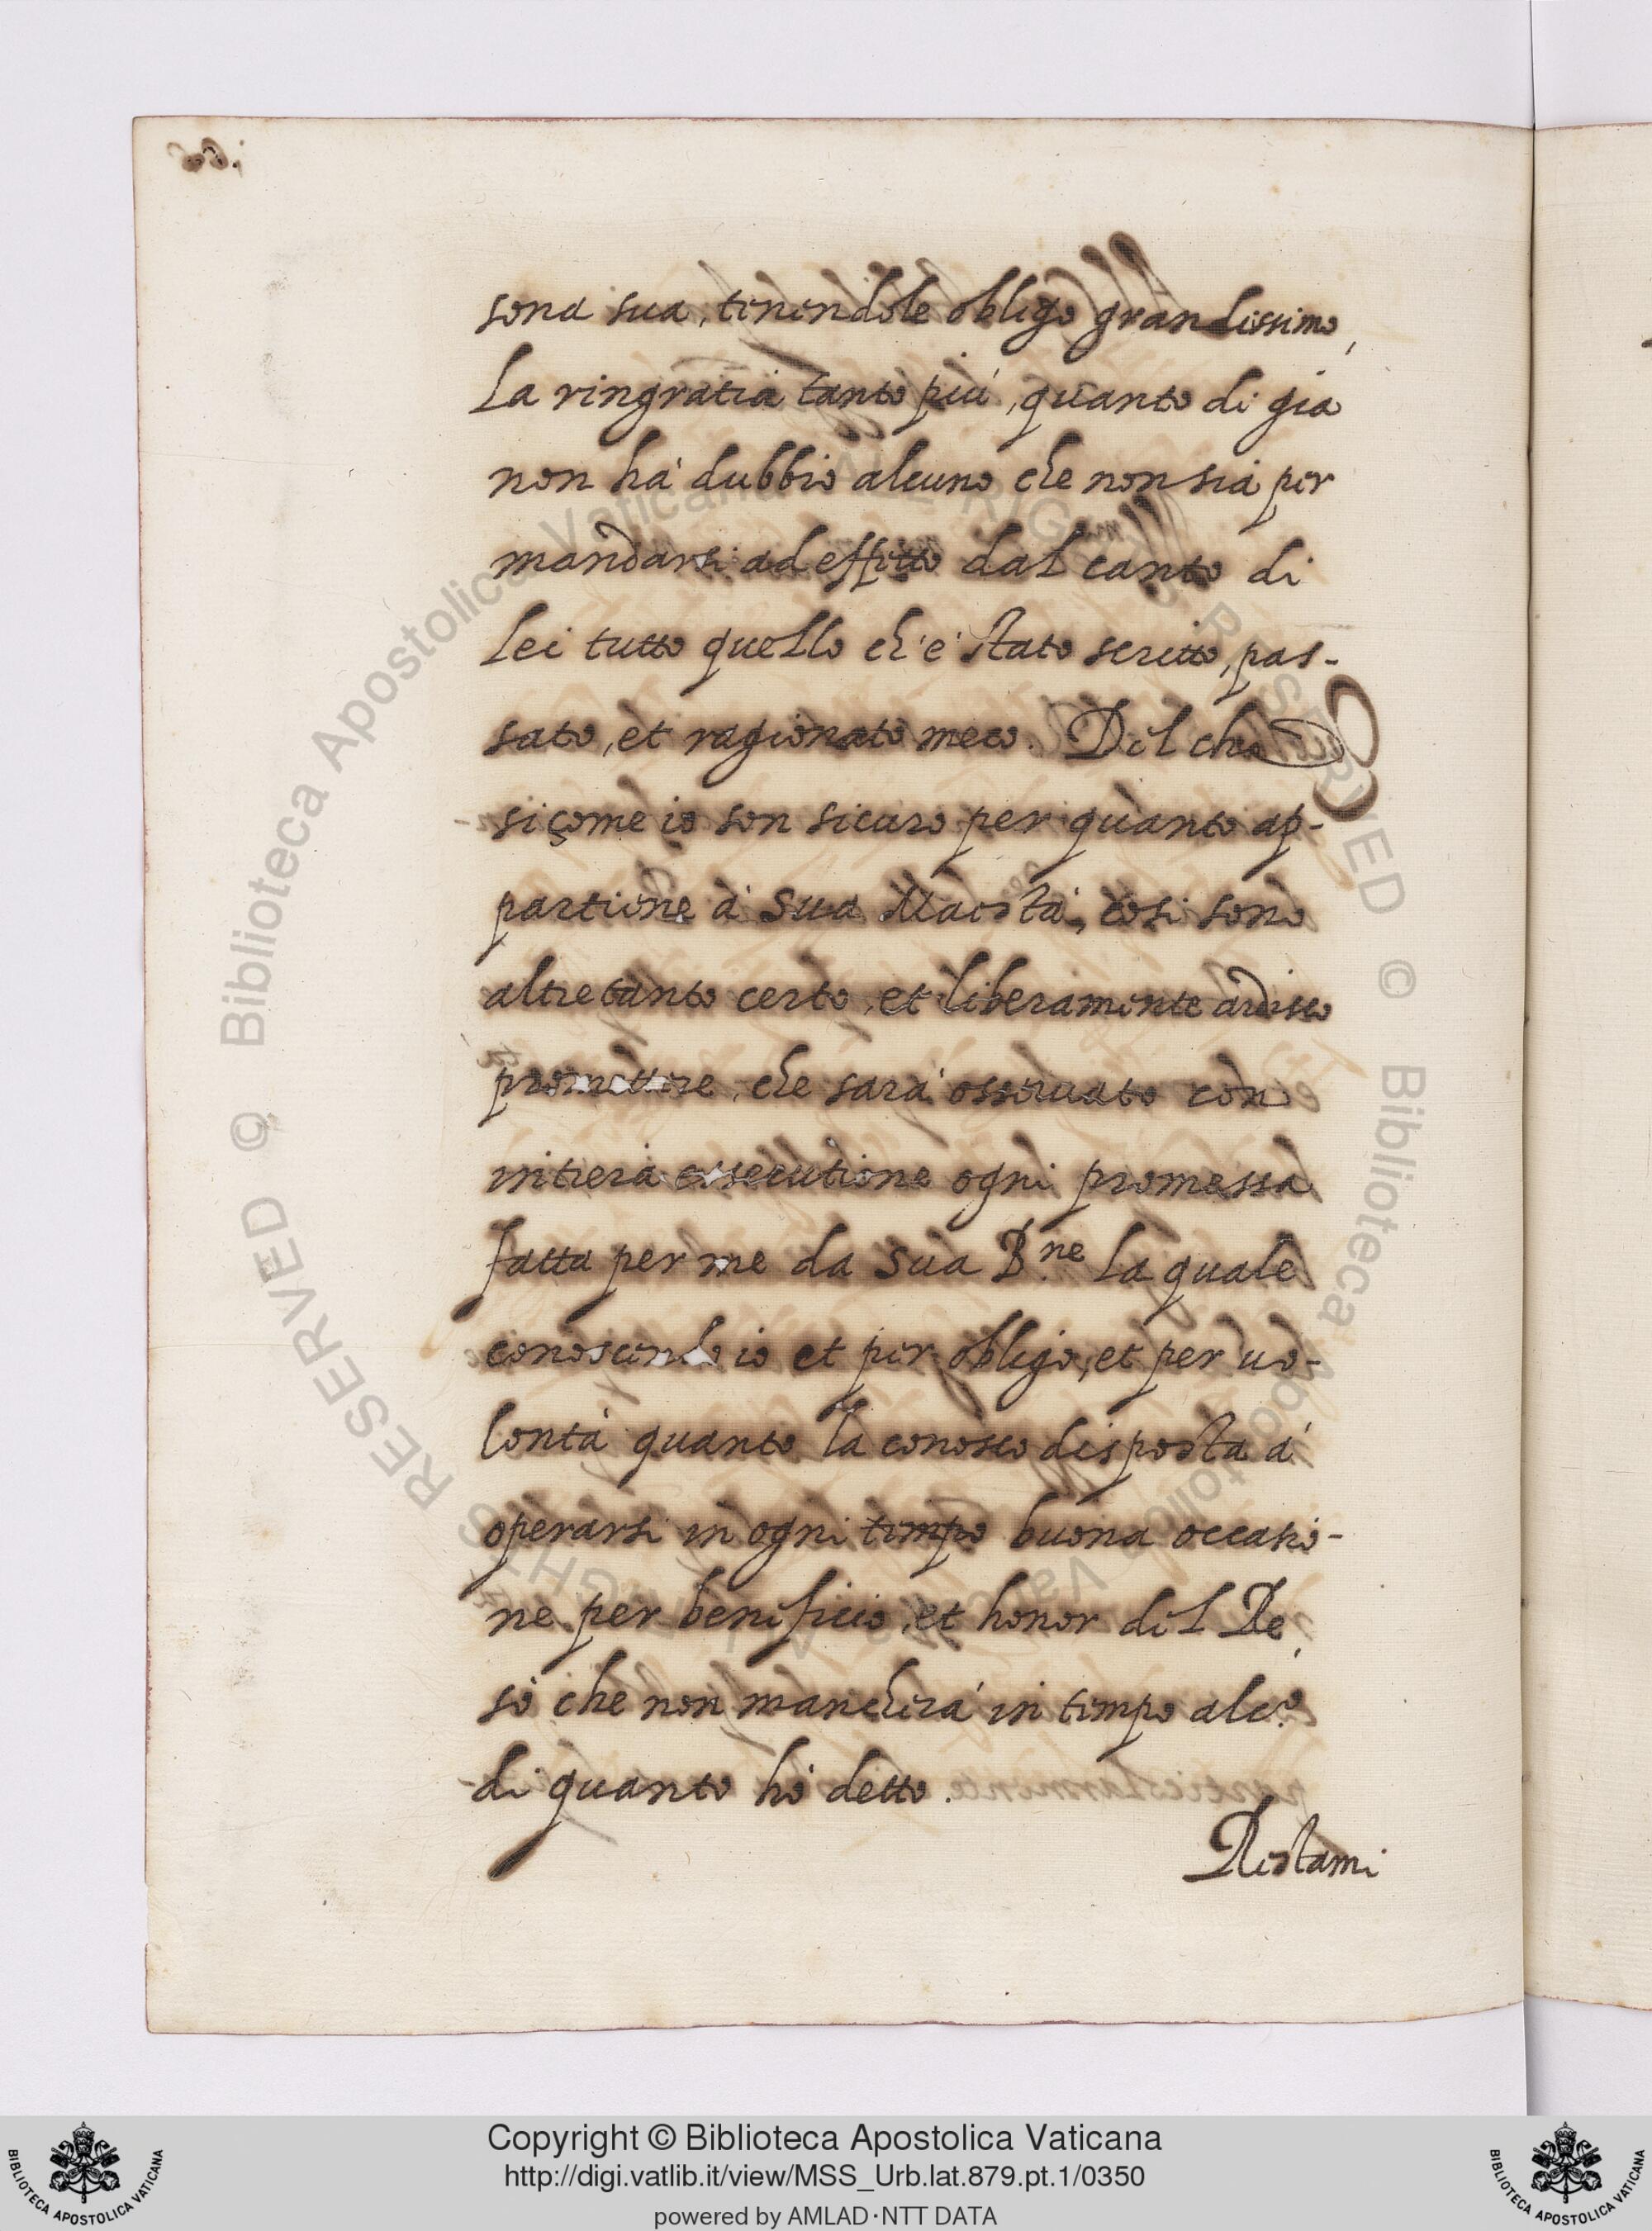 sona sua, tenendole obligo grandissimo,
La ringratia tanto più, quanto di gia
non hà dubbio alcuno che non sia per
mandarsi ad effetto dal canto di
Lei tutto quello ch'è stato scritto, pas-
sato, et ragionato meco. Del che
sicome io son sicuro per quanto ap-
partiene à Sua Maestà, cosi sono
altretanto certo, et liberamente ardisco
promettere, che sarà osservato con
intiera essecutione ogni promessa
fatta per me da Sua B.ne La quale
conoscendo io et per obligo, et per uo-
lontà quanto la conosco disposta à
operarsi in ogni tempo buona occasio-
ne per beneficio, et honor del Re,
sò che non mancherà in tempo alc.o
di quanto hò detto.
Restami
Copyright © Biblioteca Apostolica Vaticana
http://digi.vatlib.it/view/MSS_Urb.lat.879.pt.1/0350
powered by AMLAD·NTT DATA
BIBLIOTECA APOSTOLICA VATICANA
BIBLIOTECA APOSTOLICA VATICANA